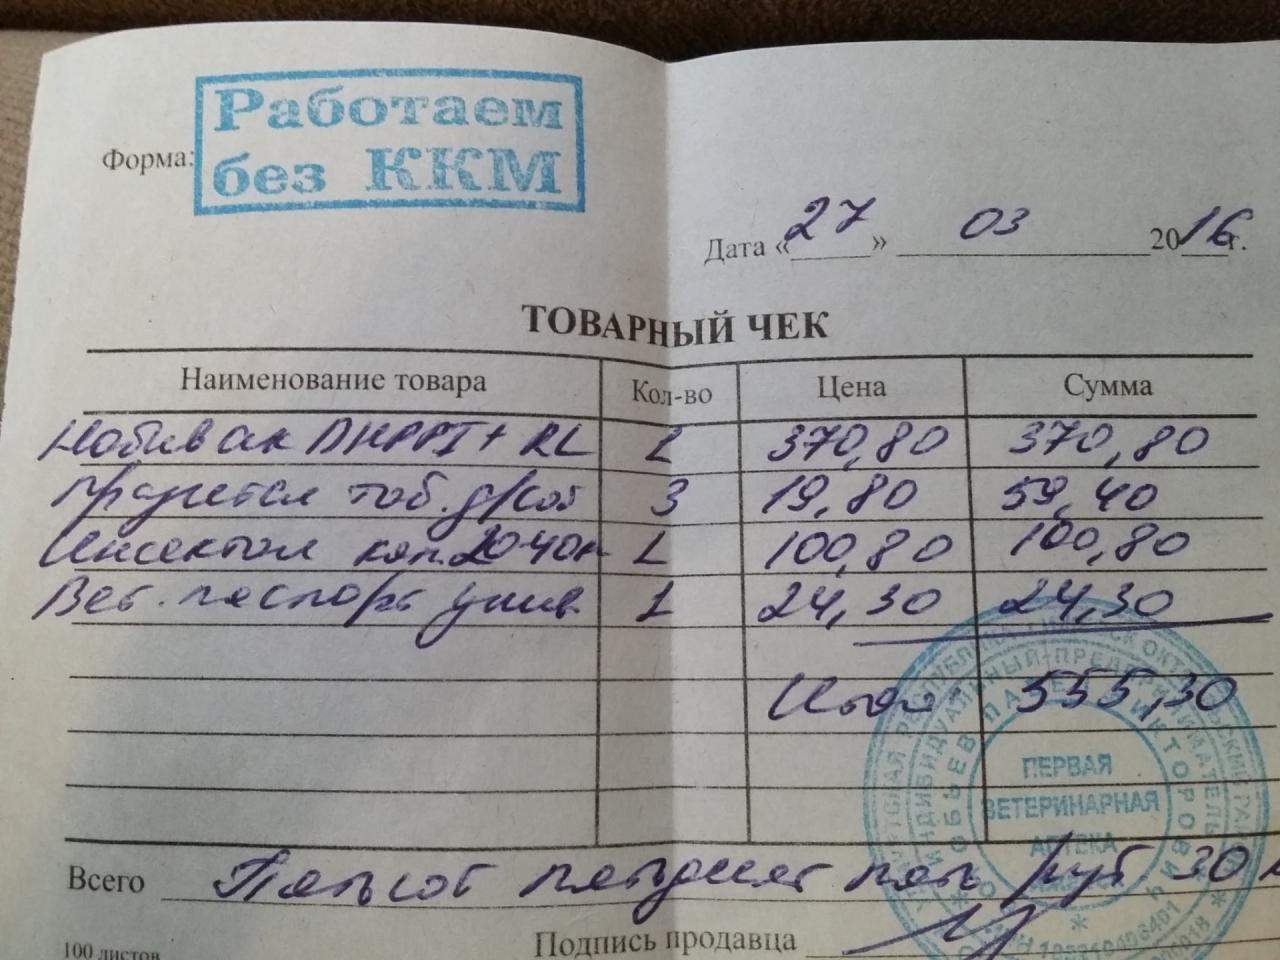 Работаем
без ККМ
Форма:
Дата «27» 03 2016г.
ТОВАРНЫЙ ЧЕК
Наименование товара Кол-во Цена Сумма
Нобивак DHPPI + RL 1 370,80 370,80
таб. д/соб 3 19,80 59,40
Инсектал кап. 20-40к 1 100,80 100,80
Вет. паспорт унив. 1 24,30 24,30
Итого: 555,30
ПЕРВАЯ
ВЕТЕРИНАРНАЯ
АПТЕКА
ИНДИВИДУАЛЬНЫЙ ПРЕДПРИНИМАТЕЛЬ
Всего Пятьсот пятдесят пять руб 30
Подпись продавца
100 листов